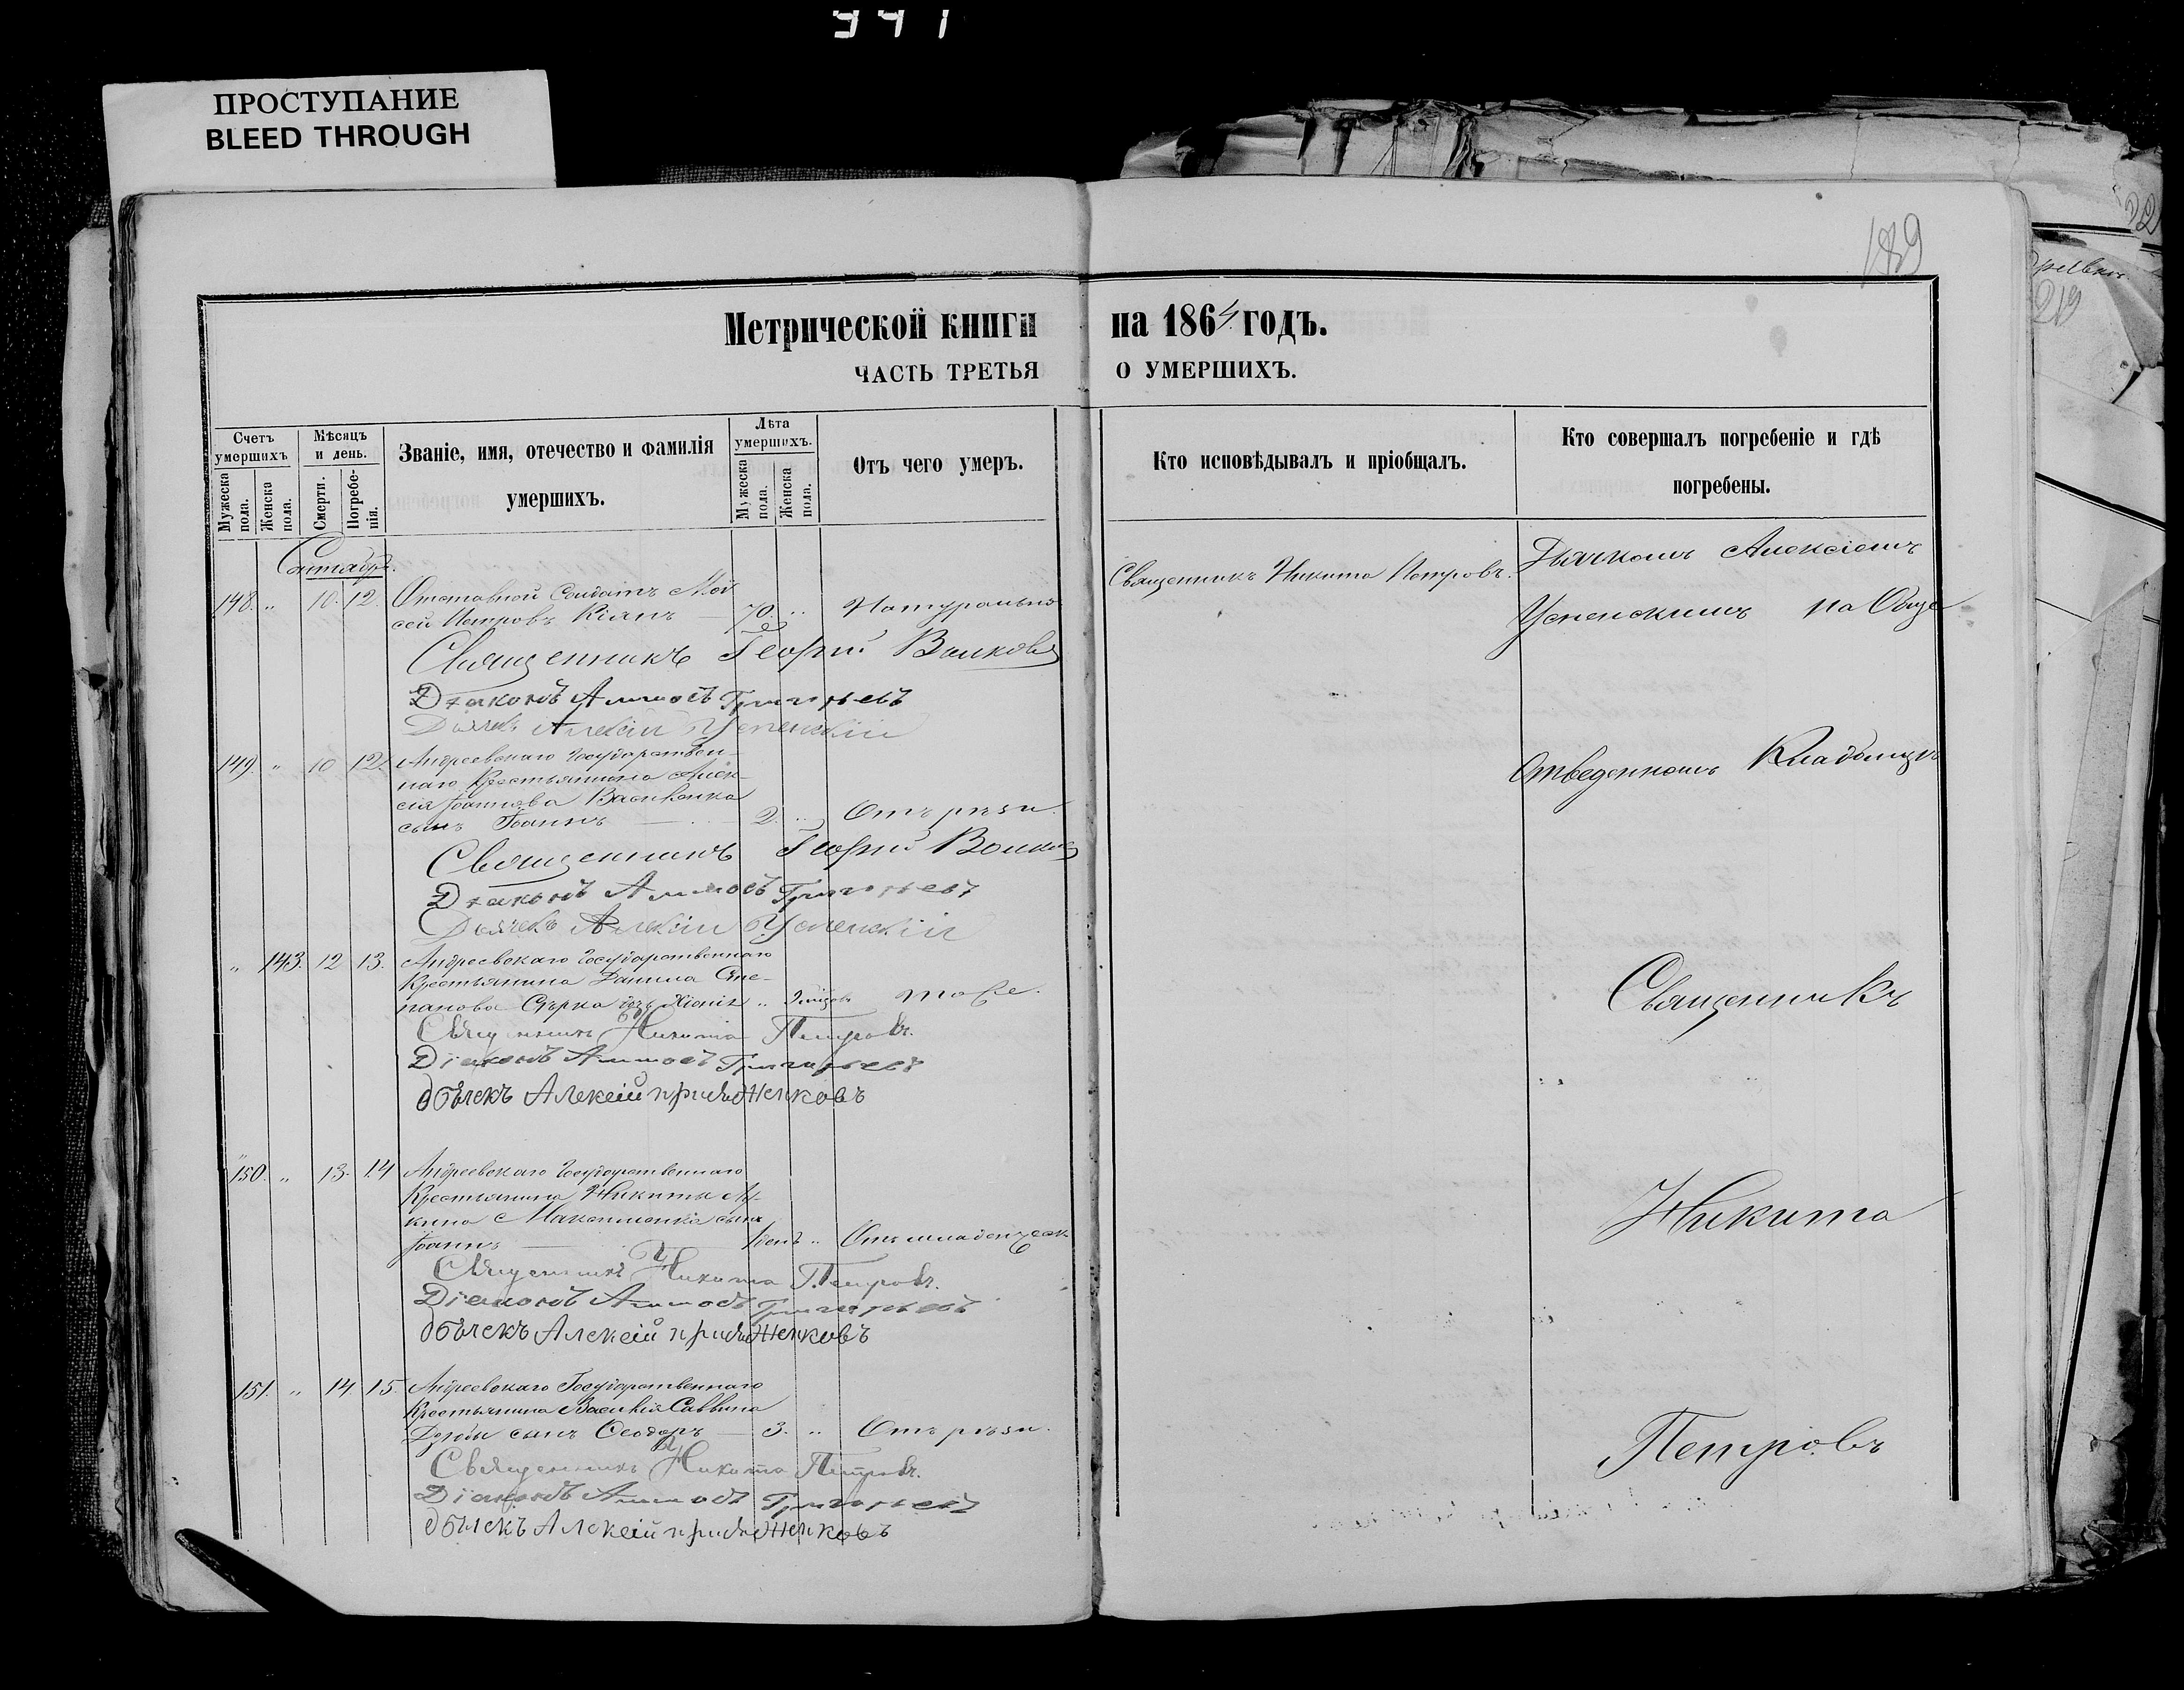 341
ПРОСТУПАНИЕ
BLEED THROUGH
189
219
Метрической книги на 1864 годъ.
ЧАСТЬ ТРЕТЬЯ О УМЕРШИХЪ.
Счетъ умершихъ
Мужеска пола.
Женска пола.
Мѣсяцъ и день.
Смерти.
Погребенія.
Званіе, имя, отечество и фамилія умершихъ.
Лѣта умершихъ.
Мужеска пола.
Женска пола.
Отъ чего умеръ.
Кто исповѣдывалъ и пріобщалъ.
Кто совершалъ погребеніе и гдѣ погребены.
Сентябрь.
148. „ 10. 12. Отставной Солдатъ Мой
сей Петровъ Кіянъ — 70. „ Натурально
Священникъ Никита Петровъ.
Священникъ Георгій Волковъ
Діаконъ Аммосъ Григорьевъ
Дьячекъ Алексій Успенскій
149. „ 10 12. Андреевскаго Государствен-
наго Крестьянина Алек-
сія Іоаннова Василенка
сынъ Іоаннъ — 2. „ Отъ рѣзи.
Священникъ Георгій Волковъ
Діаконъ Аммосъ Григорьевъ
Дьячекъ Алексій Успенскій
„ 143. 12 13. Андреевскаго Государственнаго
Крестьянина Данила Сте-
панова Сѣрка дочь Хіонія „ тоже.
Священникъ Никита Петровъ.
Діаконъ Аммосъ Григорьевъ
дьячекъ Алексій
150. „ 13. 14 Андреевскаго Государственнаго
Крестьянина Никиты Лу-
кина Максименка сынъ
Іоаннъ — 1 день „ Отъ младенческ
Священникъ Никита Петровъ.
Діаконъ Аммосъ Григорьевъ
дьячекъ Алексій
151. „ 14 15. Андреевскаго Государственнаго
Крестьянина Василія Саввина
Дзюбы сынъ Ѳеодоръ — 3. „ Отъ рѣзи.
Священникъ Никита Петровъ.
Діаконъ Аммосъ Григорьевъ
дьячекъ Алексій
Дьячкомъ Алексіемъ
Успенскимъ на Обще
Отведенномъ Кладбищѣ
Священникъ
Никита
Петровъ